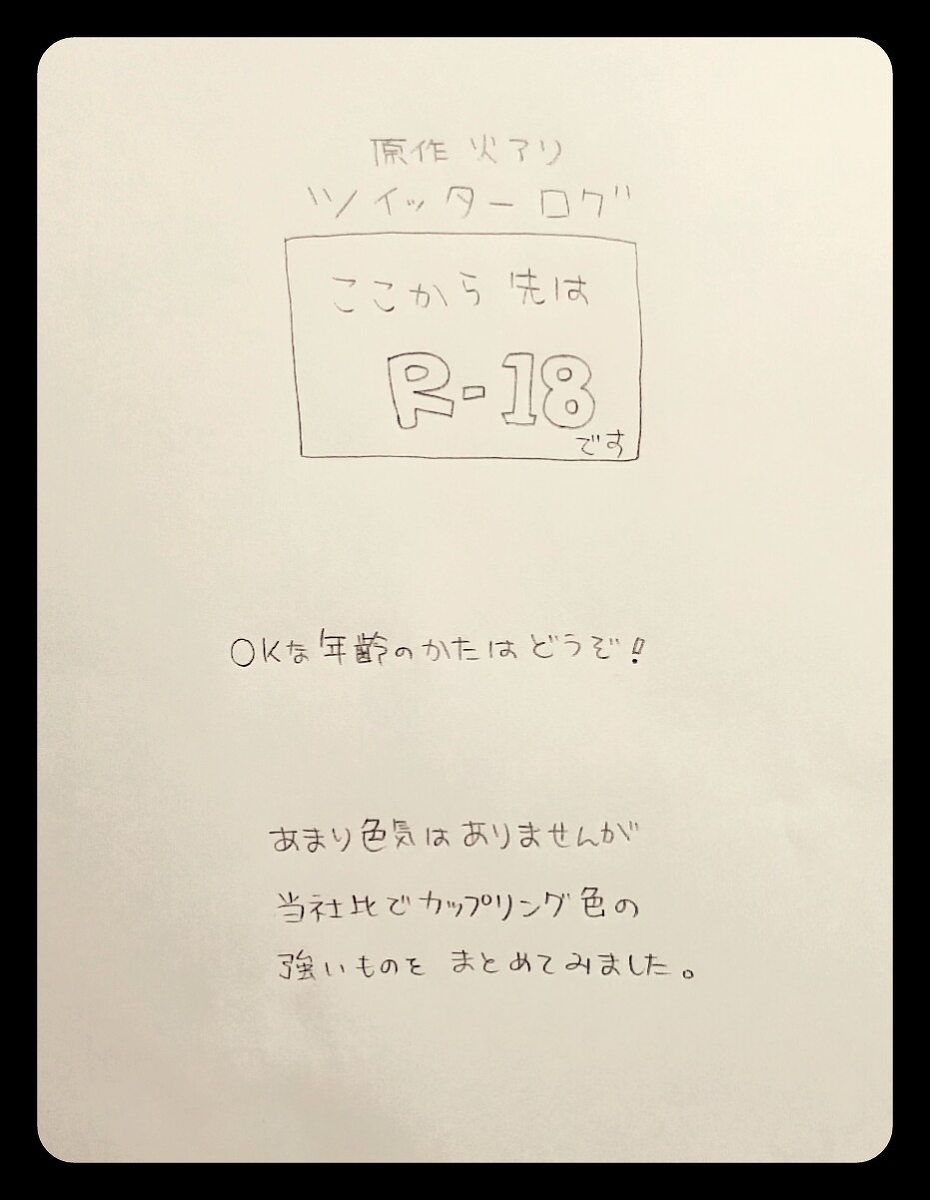 原作 火アリ
"ツイッターログ"
ここから先は
R-18
です
OKな年齢のかたはどうぞ!
あまり色気はありませんが
当社比でカップリング色の
強いものを まとめてみました。